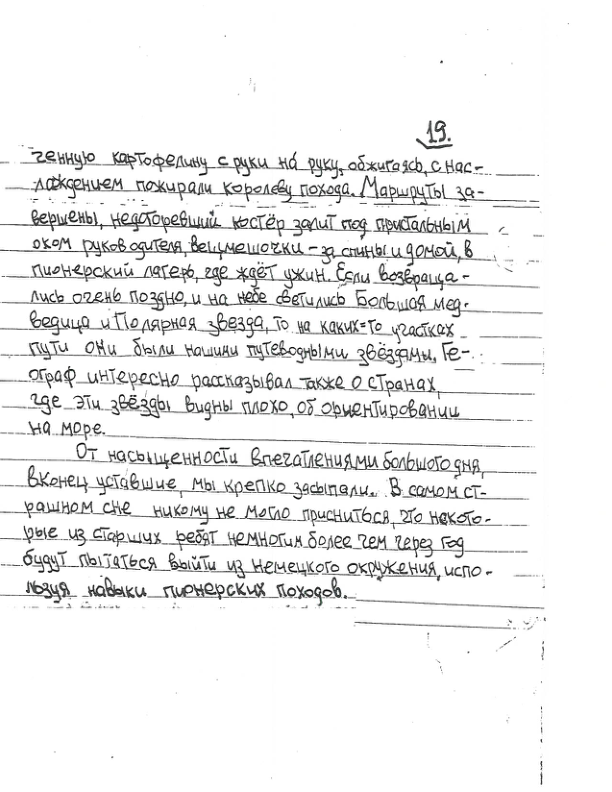 19.
ченную картофелину с руки на руку, обжигаясь, с нас-
лаждением пожирали королеву похода. Маршруты за-
вершены, недогоревший костёр залит под пристальным
оком руководителя, вещмешочки – за спины и домой, в
пионерский лагерь, где ждёт ужин. Если возвраща-
лись очень поздно, и на небе светились Большая мед-
ведица и Полярная звезда, то на каких-то участках
пути они были нашими путеводными звёздами. Ге-
ограф интересно рассказывал также о странах,
где эти звёзды видны плохо, об ориентировании
на море.
От насыщенности впечатлениями большого дня,
вконец уставшие, мы крепко засыпали. В самом ст-
рашном сне никому не могло присниться, что некото-
рые из старших ребят немногим более чем через год
будут пытаться выйти из немецкого окружения, испо-
льзуя навыки пионерских походов.